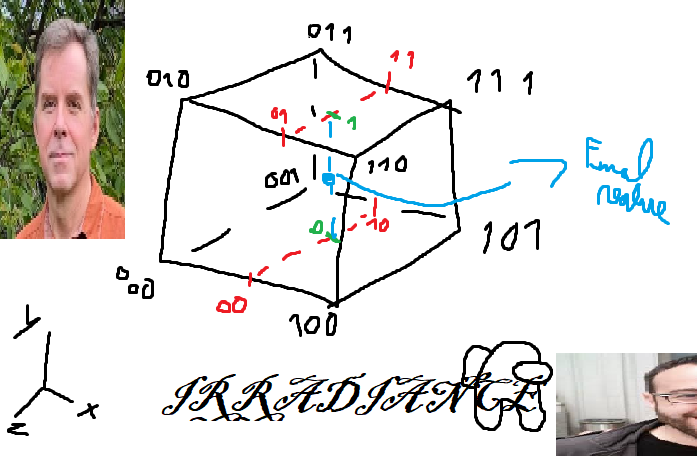 011
11
010
111
01
1
001
110
Final
0
10
101
000
00
100
y
x
z
IRRADIANCE